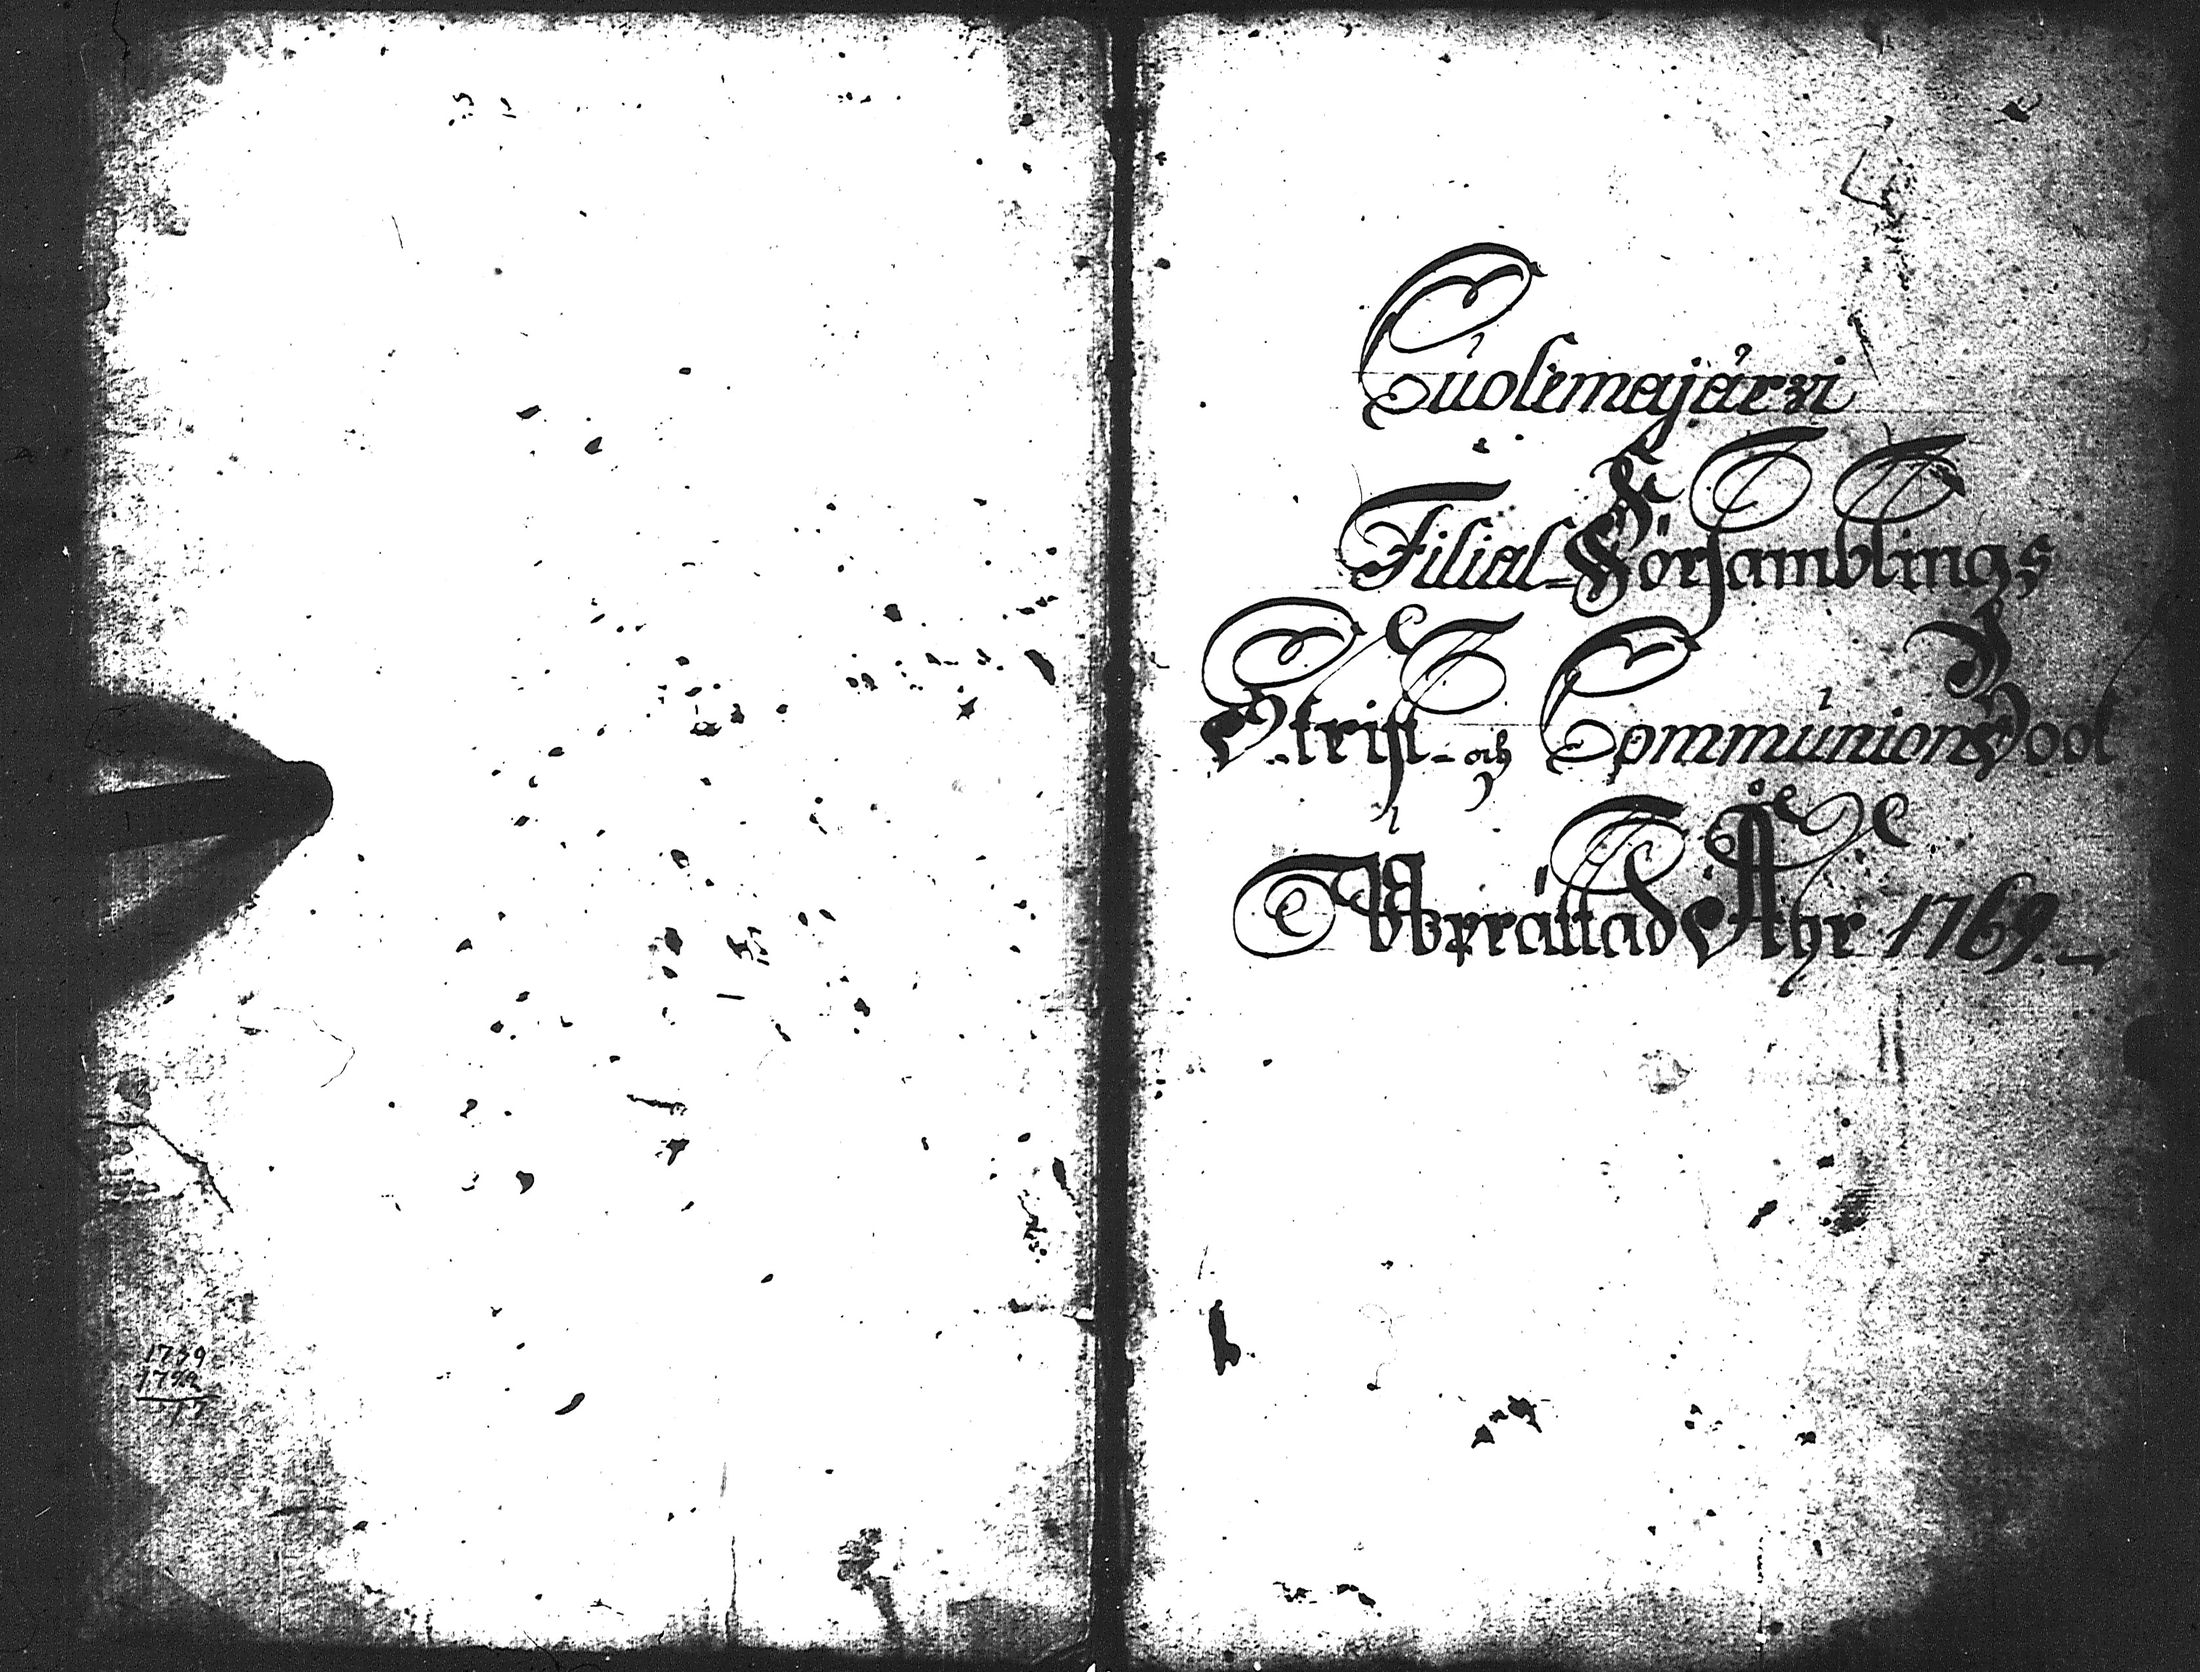 1739
1722
17
Cuolemajärvi
Filial-Församblings
Skrift- och CommunionsBook
Upprättad Åhr 1769.